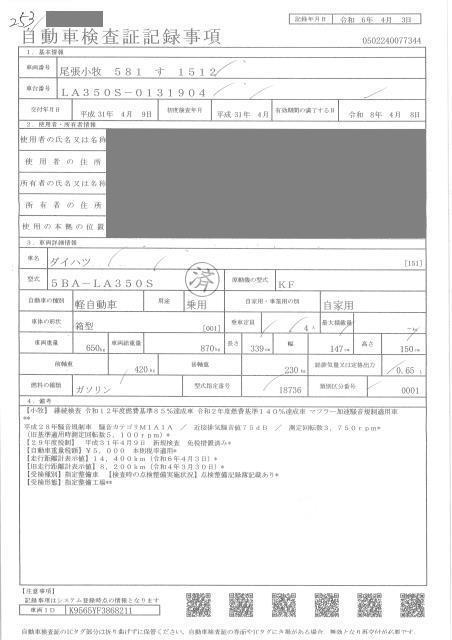 253
記録年月日 令和 6年 4月 3日
自動車検査証記録事項
0502240077344
1. 基本情報
車両番号 尾張小牧 581 す 1512
車台番号 LA350S-0131904
交付年月日 平成31年 4月 9日 初度検査年月 平成31年 4月 有効期間の満了する日 令和 8年 4月 8日
2. 使用者・所有者情報
使用者の氏名又は名称
使用者の住所
所有者の氏名又は名称
所有者の住所
使用の本拠の位置
3. 車両詳細情報
車名 ダイハツ [151]
型式 5BA-LA350S 済 原動機の型式 KF
自動車の種別 軽自動車 用途 乗用 自家用・事業用の別 自家用
車体の形状 箱型 [001] 乗車定員 4人 最大積載量 -kg
車両重量 650kg 車両総重量 870kg 長さ 339cm 幅 147cm 高さ 150cm
前軸重 420kg 後軸重 230kg 総排気量又は定格出力 0.65 L
燃料の種類 ガソリン 型式指定番号 18736 類別区分番号 0001
4. 備考
【小牧】 継続検査 令和12年度燃費基準85%達成車 令和2年度燃費基準140%達成車 マフラー加速騒音規制適用車
**
平成28年騒音規制車 騒音カテゴリM1A1A ／ 近接排気騒音値75dB ／ 測定回転数3,750rpm*
(旧基準適用時測定回転数5,100rpm)*
【29年度税制】 平成31年4月9日 新規検査 免税措置済み*
【自動車重量税額】¥5,000 本則税率適用*
【走行距離計表示値】14,400km (令和6年4月3日)*
【旧走行距離計表示値】8,200km (令和4年3月30日)*
【受検種別】指定整備車 【検査時の点検整備実施状況】点検整備記録簿記載あり*
【受検形態】指定整備工場**
【注意事項】
記録事項はシステム登録時点の情報となります
車両ID K9565YF3868211
自動車検査証のICタグ部分は折り曲げずに保管ください。自動車検査証の券面やICタグに き損がある場合 無効となり再交付が必要です。